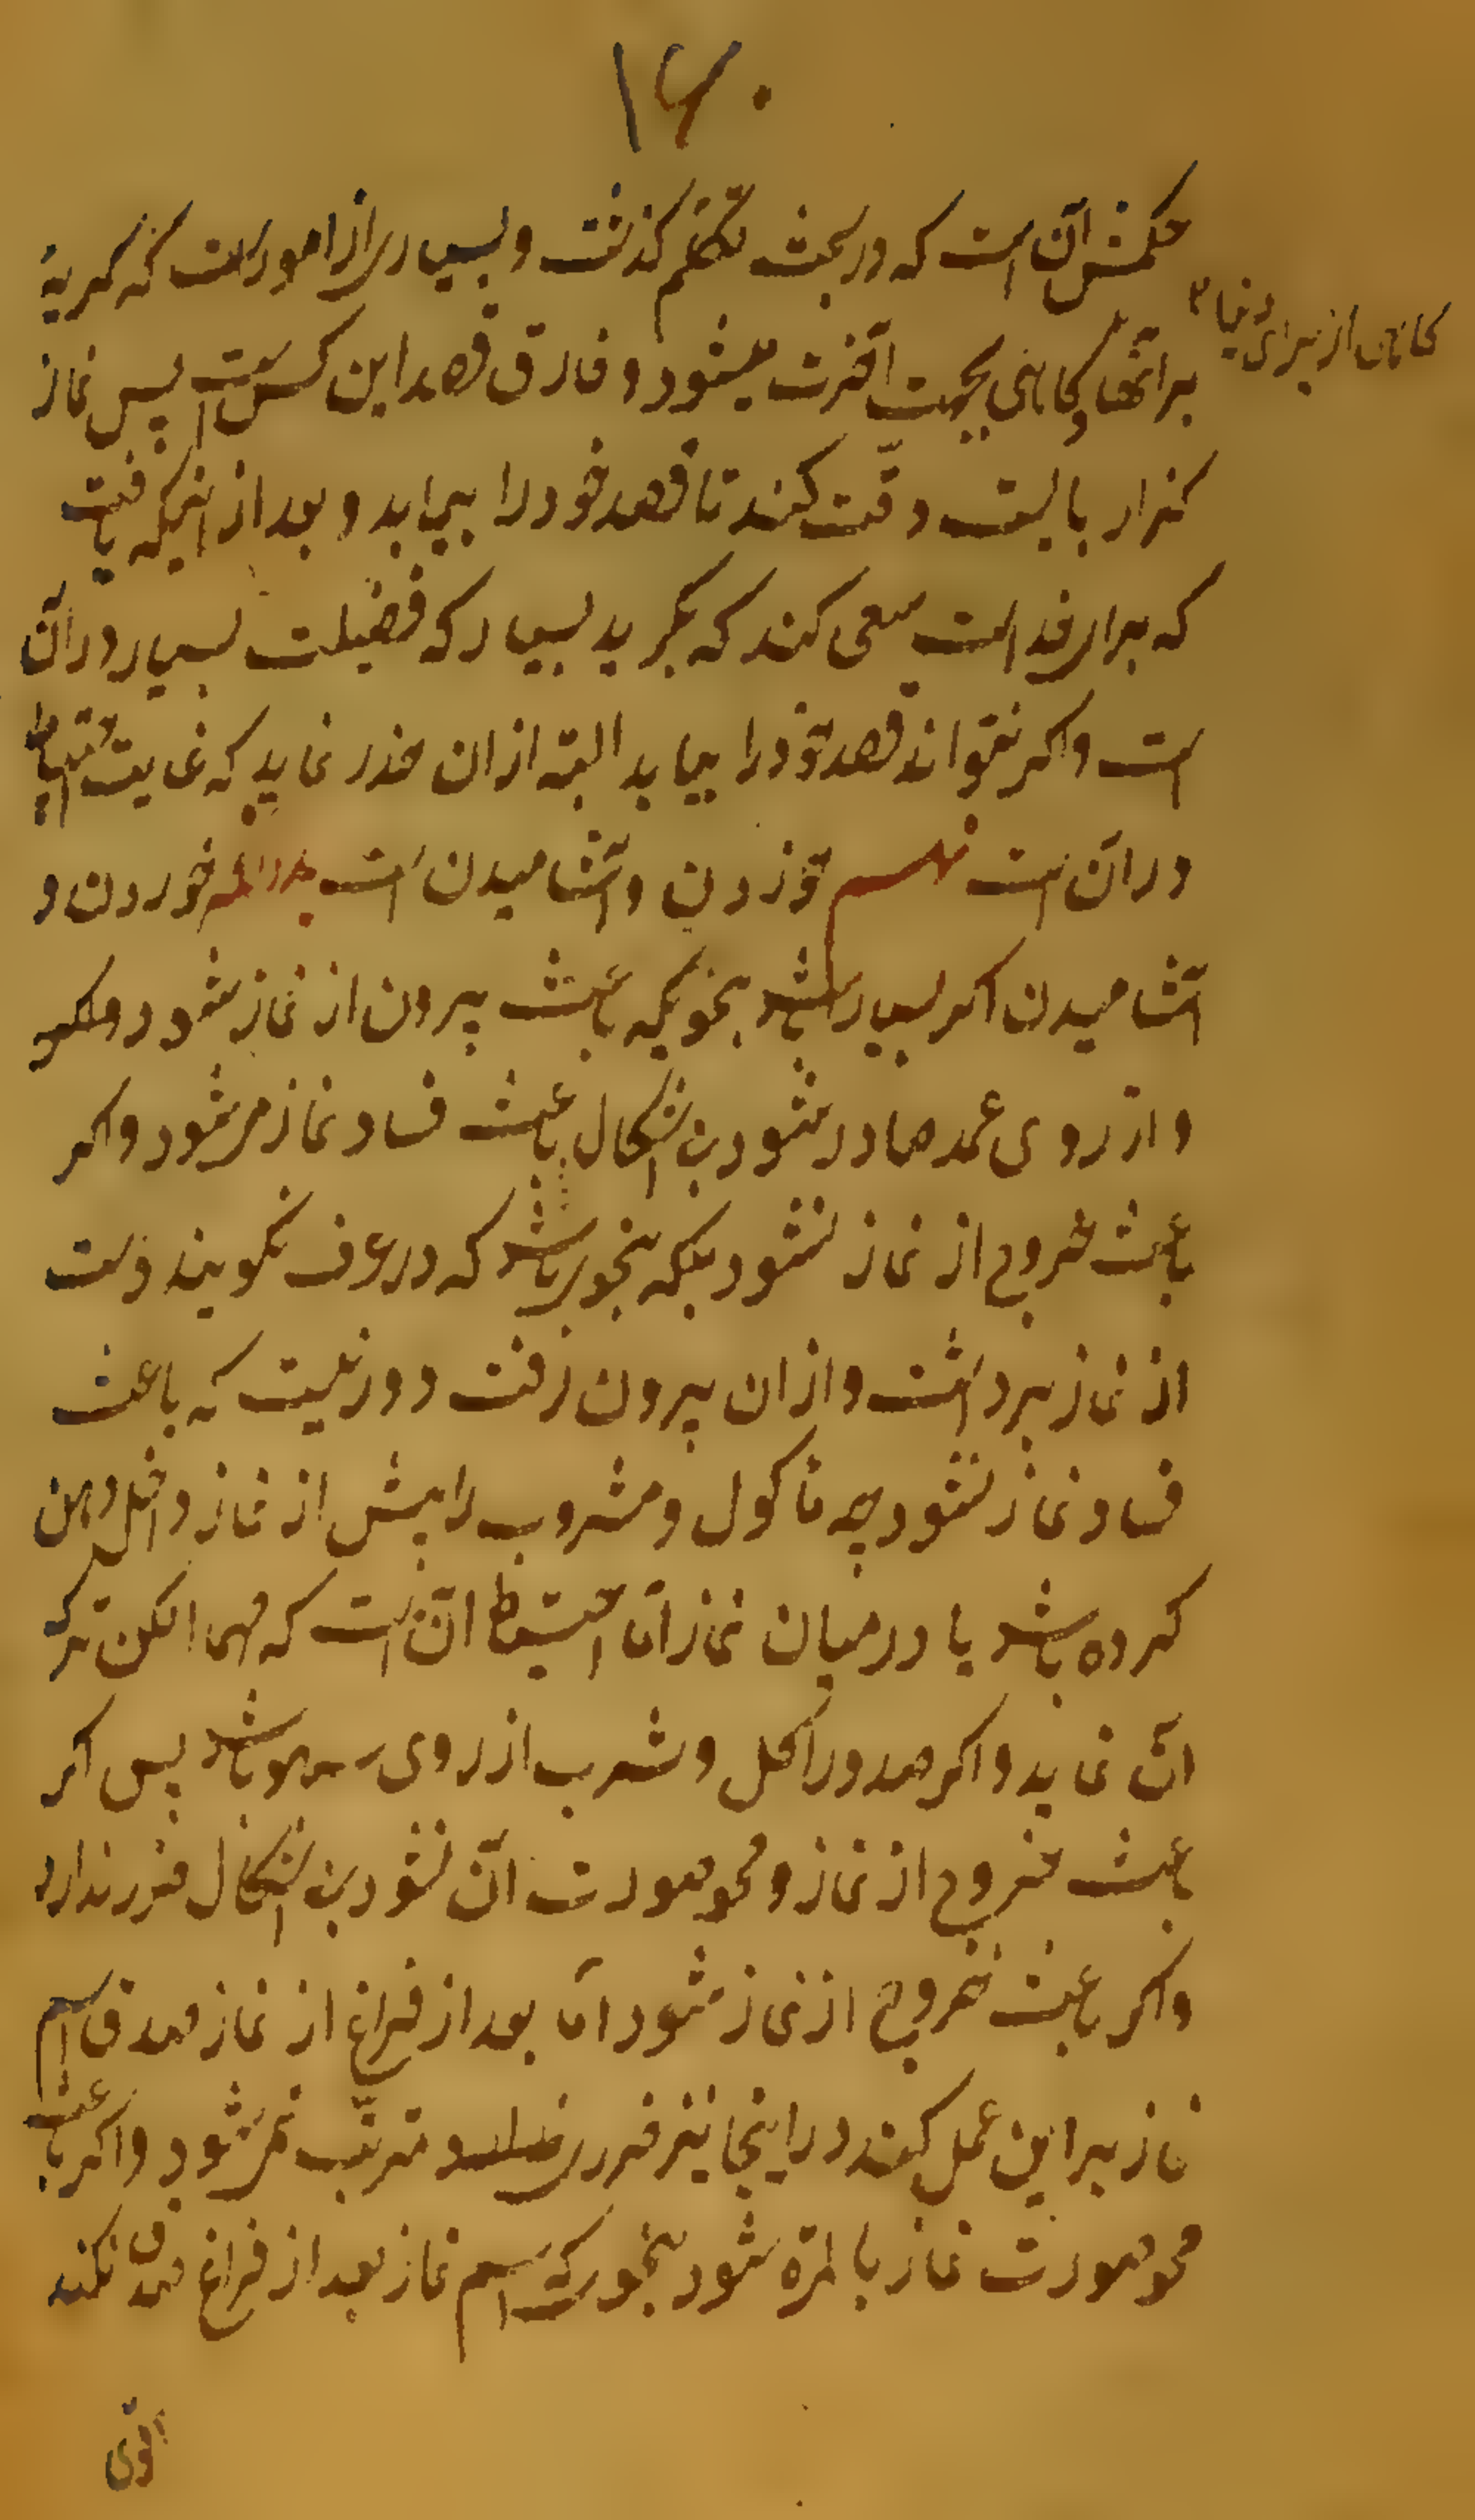 ۱۶۰
حکمش آن است که در بحث تکلّم گذشت و بسیاری از امور است که گریهٔ
کاهی از برای دنیا
بر آنها و کاهی بجهت آخرت میشود و فارق قصد این کس است پس نماز
گزار بایست دقّت کند تا قصد خود را بیابد و بعد از اینکه یافت
که برای خدا است سعی کند که بگرید بسیار که فضیلت بسیار در آن
است و اگر نتواند قصد خود را بیابد البته از آن حذر نماید که نهایت احتیاط
در آن است نهم خوردن و آشامیدن است بدانکه خوردن و
آشامیدن اگر بسیار باشد بنحویکه باعث بیرون از نماز شود
و از روی عمد صادر شود بی اشکال باعث فساد نماز میشود و اگر
باعث خروج از نماز نشود بلکه بنحوی باشد که در عرف نکویند دست
از نماز برداشت و از آن بیرون رفت دور نیست که باعث
فساد نماز نشود چه ماکول و مشروب را پیش از نماز داخل دهن
کرده باشد یا در میان نماز امّا احتیاط آن است که مهما امکن ترک
آن نماید و اگر صدور اکل و شرب از روی سهو باشد پس اگر
باعث خروج از نماز و محو صورت آن نشود بی اشکال ضرر ندارد
و اگر باعث خروج از نماز شود امّا بعد از فراغ از نماز صدق اسم
نماز بر این عمل کند در اینجا نیز ضرری و مترتّب نمیشود و اگر باعث
محو صورت نماز بالمرّه شود بنحوی که اسم نماز بعد از فراغ صدق نکند